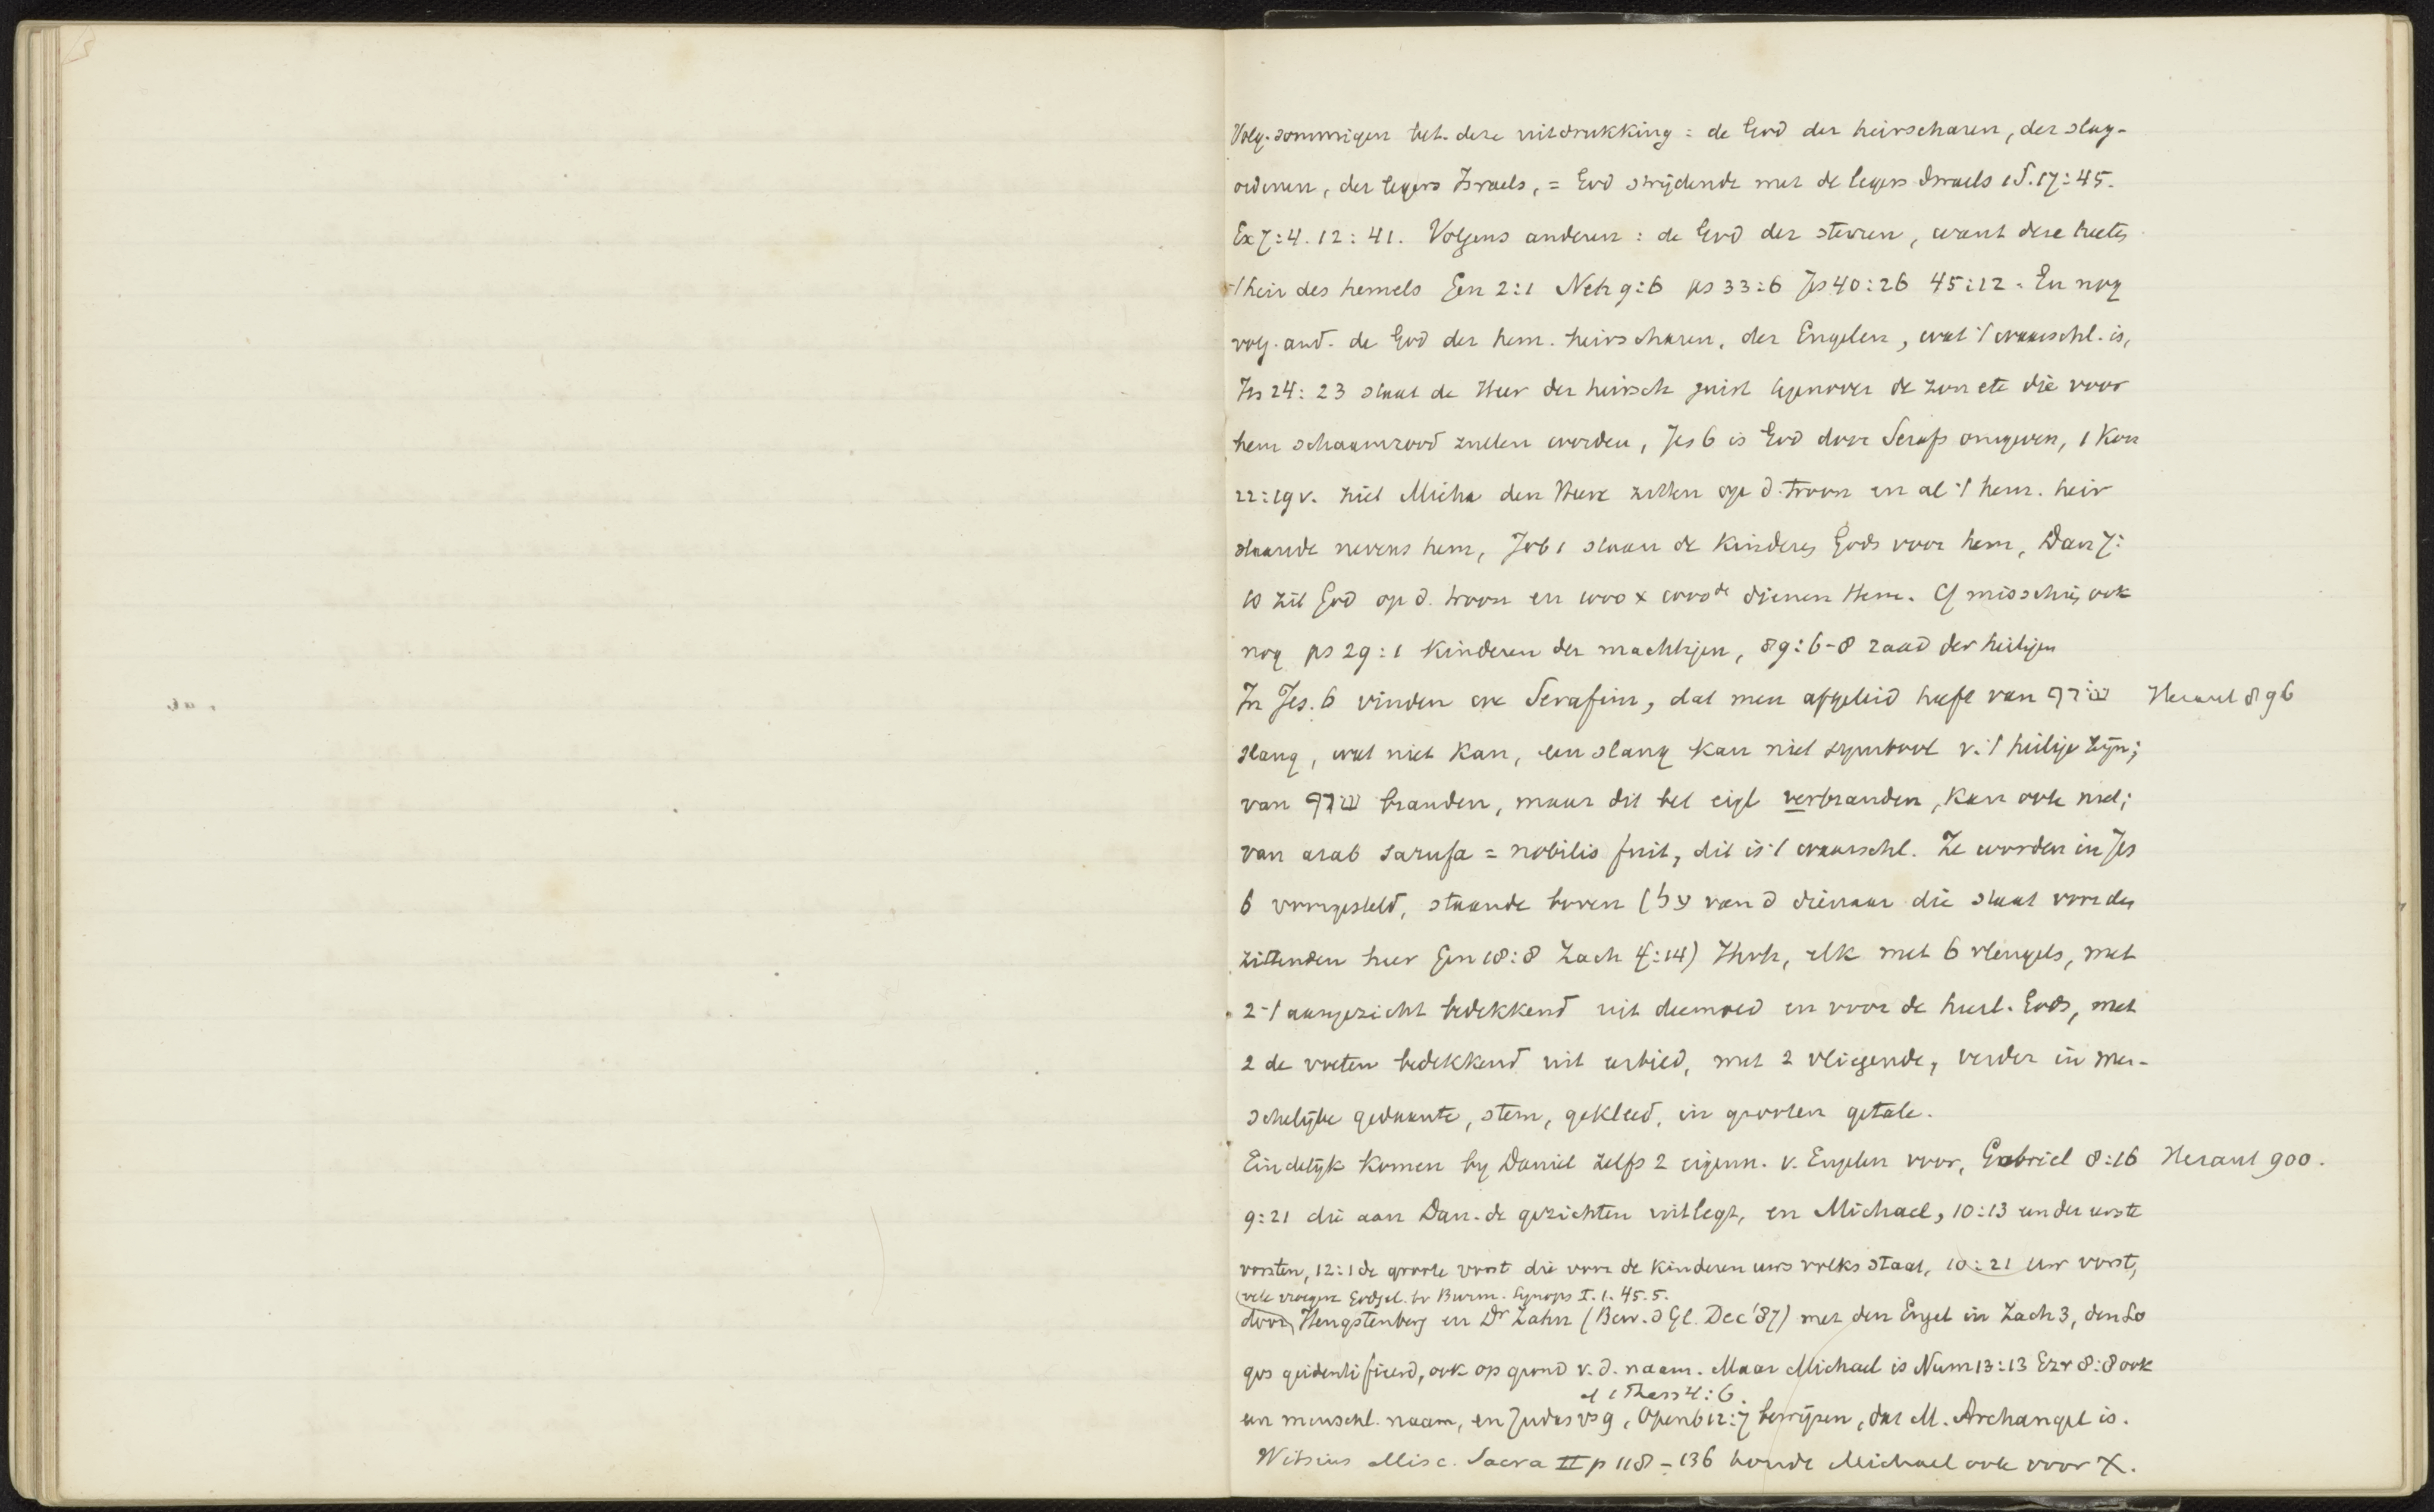 Volg. sommigen bet. deze uitdrukking : de God der heirscharen, der slag-
ordenen, der legers Israels, = God strijdende met de legers Israels 1 S. 17:45.
Ex 7:4. 12:41. Volgens anderen : de God der sterren, want deze heeten
't heir des hemels Gen 2:1 Neh 9:6 ps 33:6 Jes 40:26 45:12. En nog
volg. and. de God der hem. heirscharen, der Engelen, wat 't waarschl. is,
Jes 24:23 staat de Heer der heirsch juist tegenover de zon etc die voor
hem schaamrood zullen worden, Jes 6 is God door Serafs omgeven, 1 Kon
22:19v. ziet Micha den Heere zitten op d. troon en al 't hem. heir
staande nevens hem, Job 1 staan de kinderen Gods voor hem, Dan 7:
10 zit God op d. troon en 1000 x 1000de dienen Hem. Cf misschien ook
nog ps 29:1 kinderen der machtigen, 89:6-8 raad der heiligen
In Jes. 6 vinden we Serafim, dat men afgeleid heeft van שרף Heraut 896
slang, wat niet kan, een slang kan niet symbool v. 't heilige zijn;
van שרף branden, maar dit bet eigl verbranden, kan ook niet;
van arab sarufa = nobilis fuit, dit is 't waarschl. Ze worden in Jes
6 voorgesteld, staande boven (על van d dienaar die staat voor den
zittenden heer Gen 18:8 Zach 4:14) Jhvh, elk met 6 vleugels, met
2 't aangezicht bedekkend uit deemoed en voor de heerl. Gods, met
2 de voeten bedekkend uit eerbied, met 2 vliegende, verder in men-
schelijke gedaante, stem, gekleed, in grooten getale.
Eindelijk komen by Daniel zelfs 2 eigenn. v. Engelen voor, Gabriel 8:16 Heraut 900.
9:21 die aan Dan. de gezichten uitlegt, en Michael, 10:13 een der eerste
vorsten, 12:1 de groote vorst die voor de kinderen uws volks staat, 10:21 uw vorst,
(vele vroegere Godgel. bv Burm. Synops I. 1. 45. 5.
door Hengstenberg en Dr Zahn (Bew. d Gl. Dec '87) met den Engel in Zach 3, den Lo
gos geidentificeerd, ook op grond v. d. naam. Maar Michael is Num 13:13 Ezr 8:8 ook
cf 1 Thess 4:6.
een menschl. naam, en Judas vs 9, Openb 12:7 bewijzen, dat M. Archangel is.
Witsius Misc. Sacra II p 118-136 houdt Michael ook voor X.